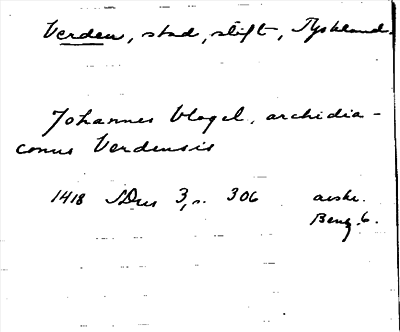 Verden, stad, stift, Tyskland.
Johannes Vlogel, archidia-
conus Verdensis
1418 SDns 3, s. 306 avskr.
Beng. 6.